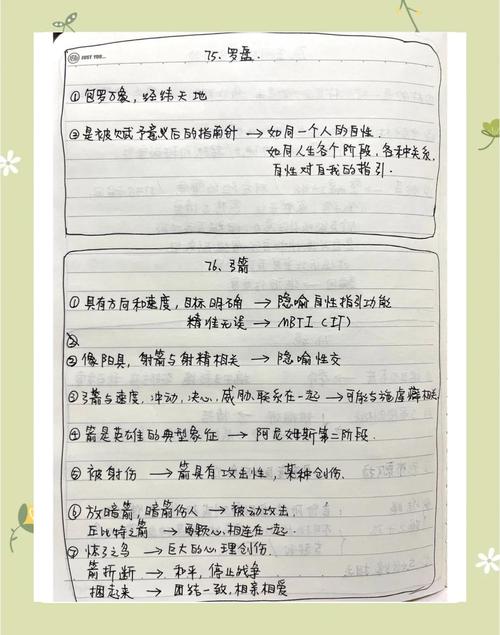 JUST YOU...
75. 罗盘.
① 包罗万象, 经纬天地
② 是被赋予意义后的指南针 → 如同一个人的自性.
如同人生各个阶段, 各种关系,
自性对自我的指引.
76. 弓箭
① 具有方向和速度, 目标明确 → 隐喻自性指引功能
精准无误 → MBTI (IT)
② 像阳具, 射箭与射精相关 → 隐喻性交
③ 弓箭与速度, 冲动, 决心, 威胁联系在一起 → 可能与施虐癖相关
④ 箭是英雄的典型象征 → 阿尼姆斯第二阶段.
⑤ 被射伤 → 箭具有攻击性, 某种创伤.
⑥ 放暗箭, 暗箭伤人 → 被动攻击
丘比特之箭 → 两颗心相连在一起.
⑦ 惊弓之鸟 → 巨大的心理创伤.
箭折断 → 和平, 停止战争
捆起来 → 团结一致, 相亲相爱